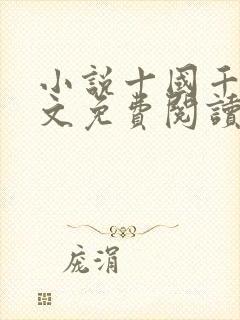 小説十國千
文免費閱讀
庞涓